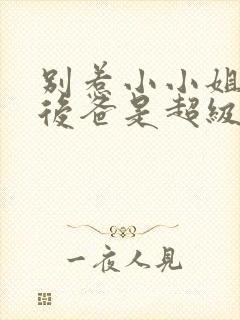 別惹小小姐
後爸是超級
一夜人見